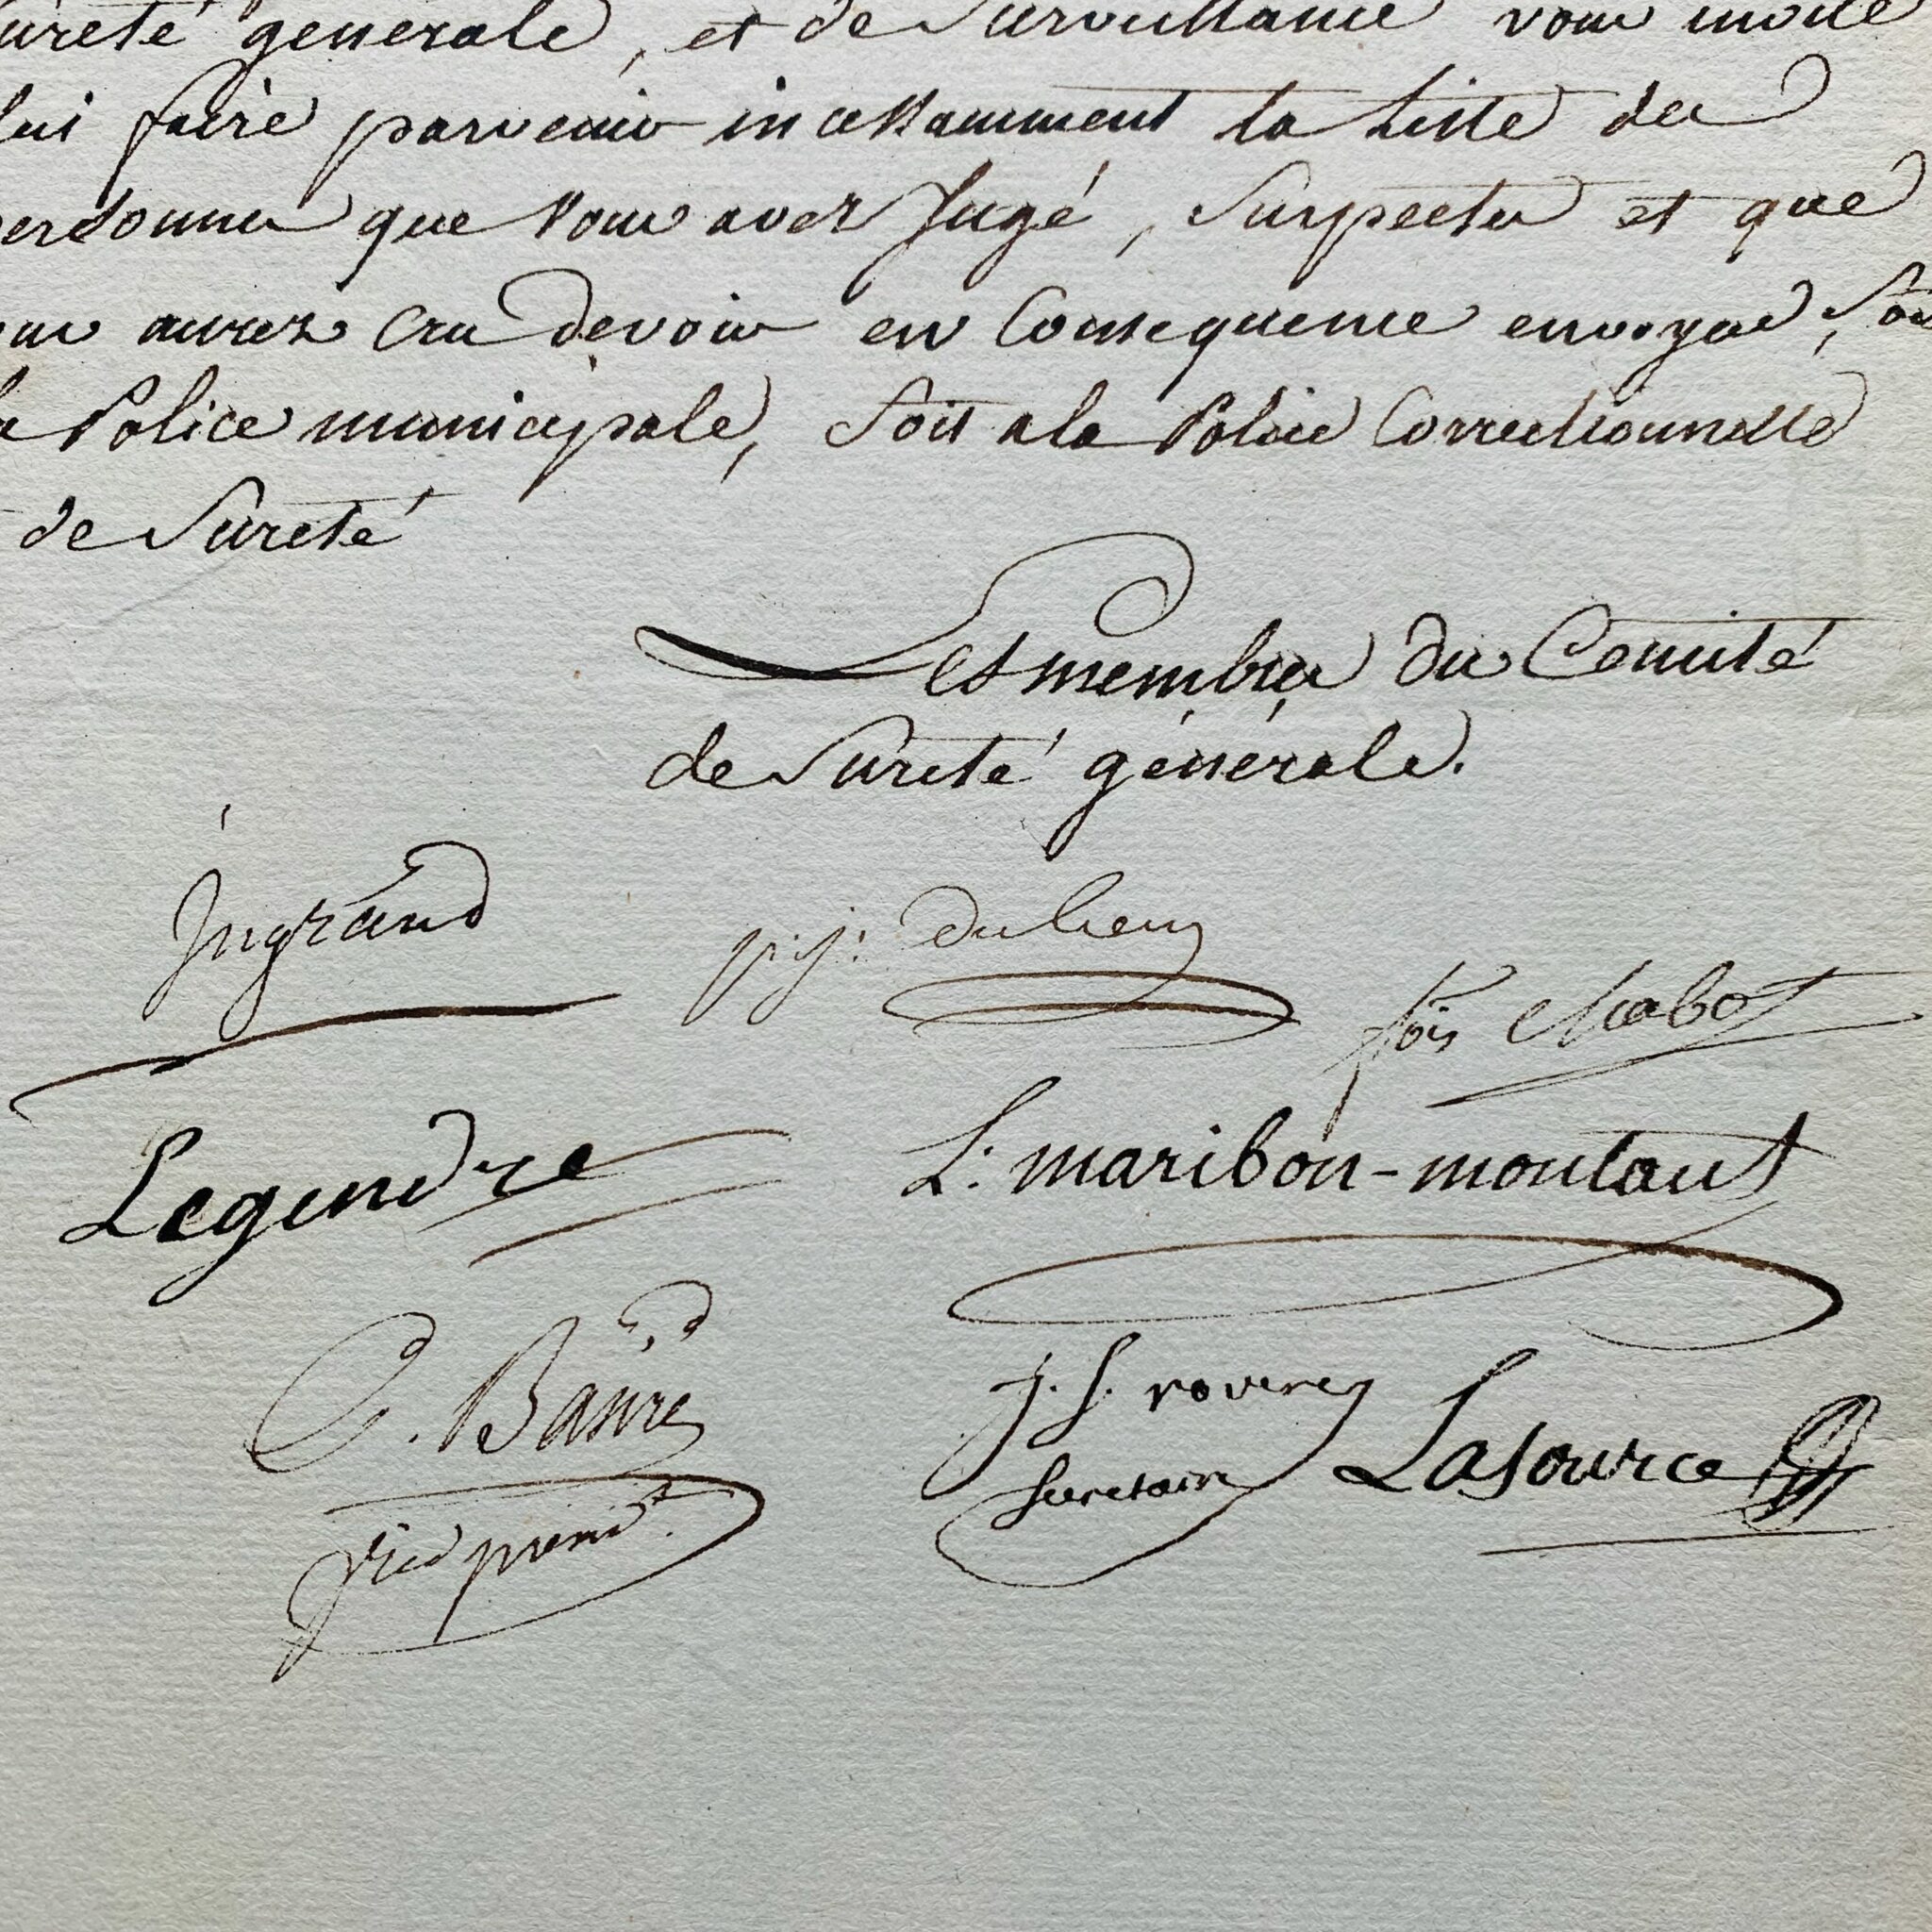 ureté generale, et de Surveillance vous invite
lui faire parvenir incessamment la Liste des
ersonnes que vous avez Jugé, Suspectes et que
ous aurez cru devoir en Consequence envoyer, Soi
la Police municipale, Soit a la Police Correctionnelle
de Sureté
Les membres du Comité
de Sureté générale.
Ingrand
p. j. duhem
fois chabot
Legendre
L. maribon-montaut
C. Basire
vice présidt.
j. S. rovere
Secretaire
Lasource